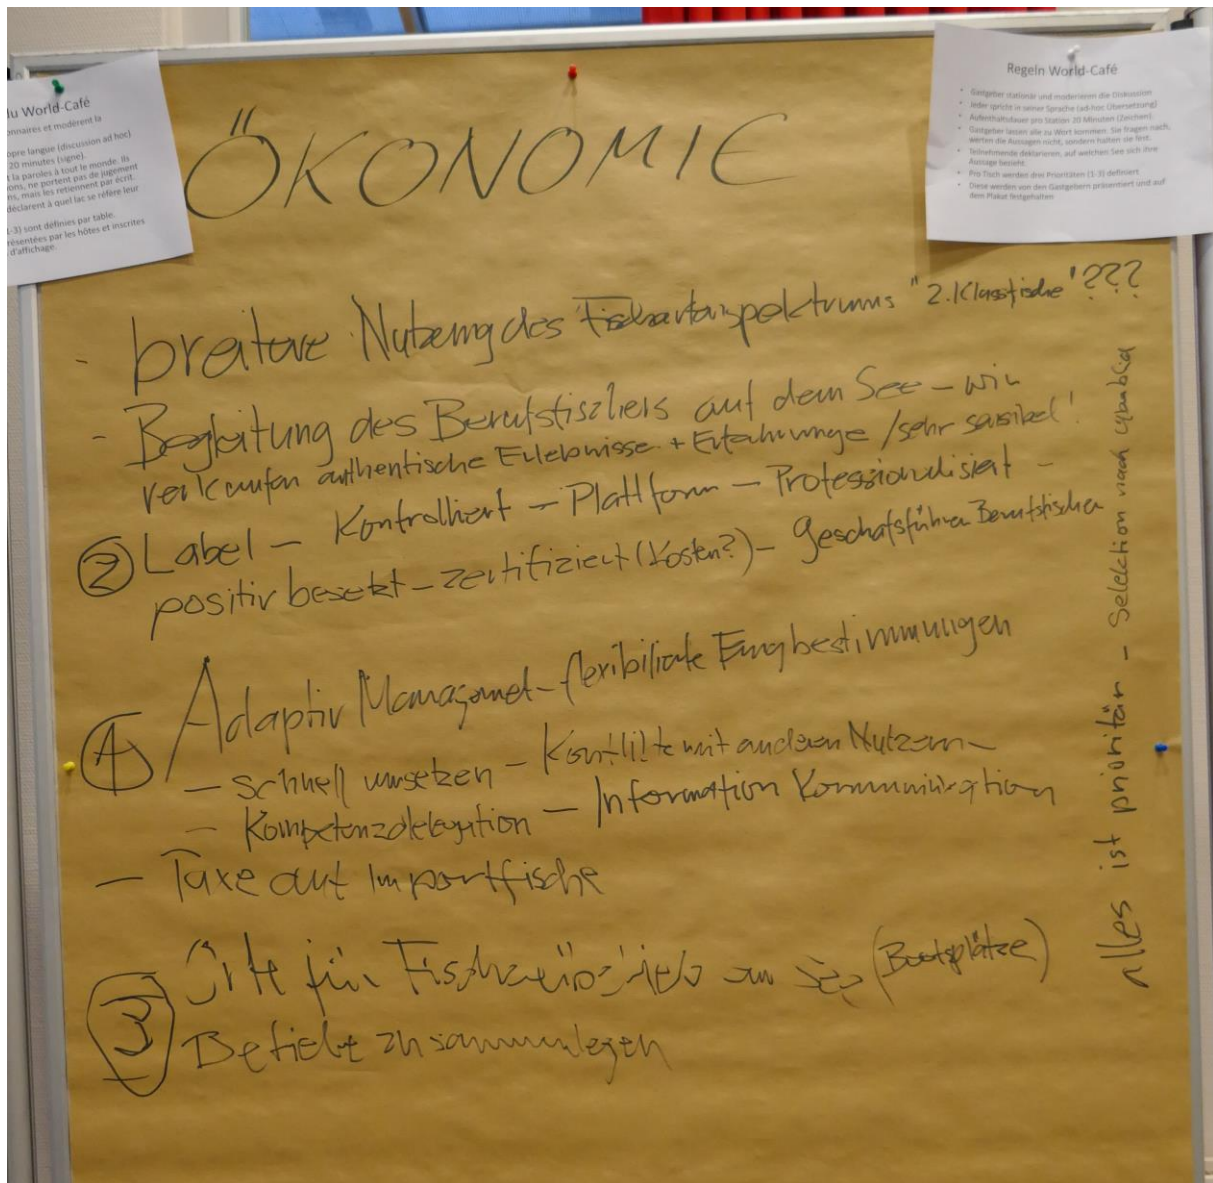 du World-Café
onnaires et modèrent la
opre langue (discussion ad hoc)
20 minutes (signe).
t la paroles à tout le monde. Ils
ons, ne portent pas de jugement
ns, mais les retiennent par écrit.
déclarent à quel lac se réfère leur
1-3) sont définies par table.
résentées par les hôtes et inscrites
d'affichage.
Regeln World-Café
• Gastgeber stationär und moderieren die Diskussion
• Jeder spricht in seiner Sprache (ad-hoc Übersetzung)
• Aufenthaltsdauer pro Station 20 Minuten (Zeichen).
• Gastgeber lassen alle zu Wort kommen. Sie fragen nach,
werten die Aussagen nicht, sondern halten sie fest.
• Teilnehmende deklarieren, auf welchen See sich ihre
Aussage bezieht.
• Pro Tisch werden drei Prioritäten (1-3) definiert
• Diese werden von den Gastgebern präsentiert und auf
dem Plakat festgehalten
ÖKONOMIE
- breitere Nutzung des Fischartenspektrums "2. Klassfische" ???
- Begleitung des Berufsfischers auf dem See – wir
verkaufen authentische Erlebnisse + Erfahrunge / sehr sensibel!
② Label – Kontrolliert – Plattform – Professionalisiert –
positiv besetzt – zertifiziert (Kosten?) – Geschäfsführer Berufsfischer
① Adaptiv Managemet – flexibiliate Fangbestimmungen
– schnell umsetzen – Konflikte mit anderen Nutzern –
– Kompetenzdelegation – Information Kommunikation
– Taxe auf Importfische
③ Orte für am See (Bootsplätze)
Betiebe zusammenlegen
Alles ist prioritär – Selektion nach